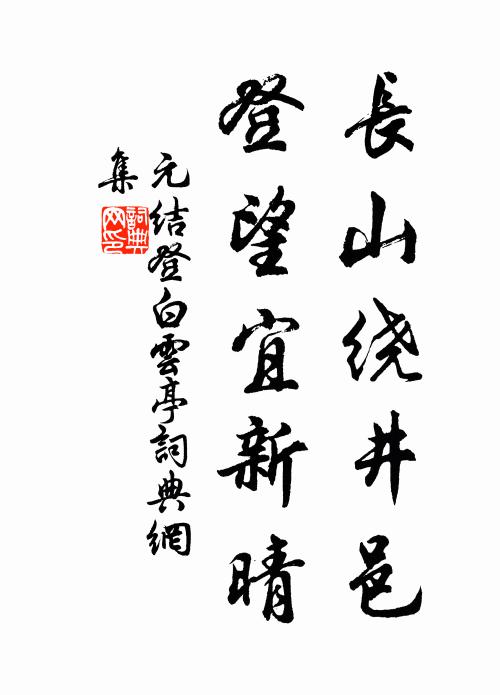 長山绕井邑
登望宜新晴
元结登白雲亭詞典網
集
詞典
网印